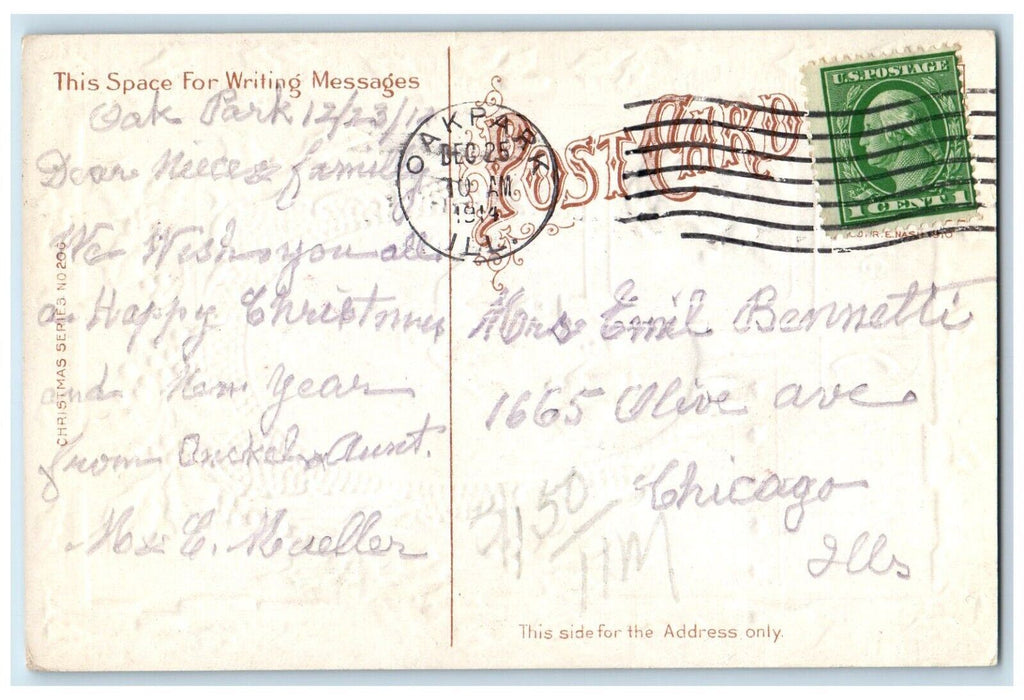 This Space For Writing Messages
Oak Park 12/23/14
Dear Niece & family
We Wish you all
a Happy Christmas
and New Year
from Onckel & Aunt.
M & E. Mueller
CHRISTMAS SERIES NO 206
OAK PARK
DEC 25
10 AM
1914
ILL.
POST CARD
U.S. POSTAGE
1 CENT 1
COPR. E. NASH
Mrs Emil Bennetti
1665 Olive ave
Chicago
Ills
50
This side for the Address only.